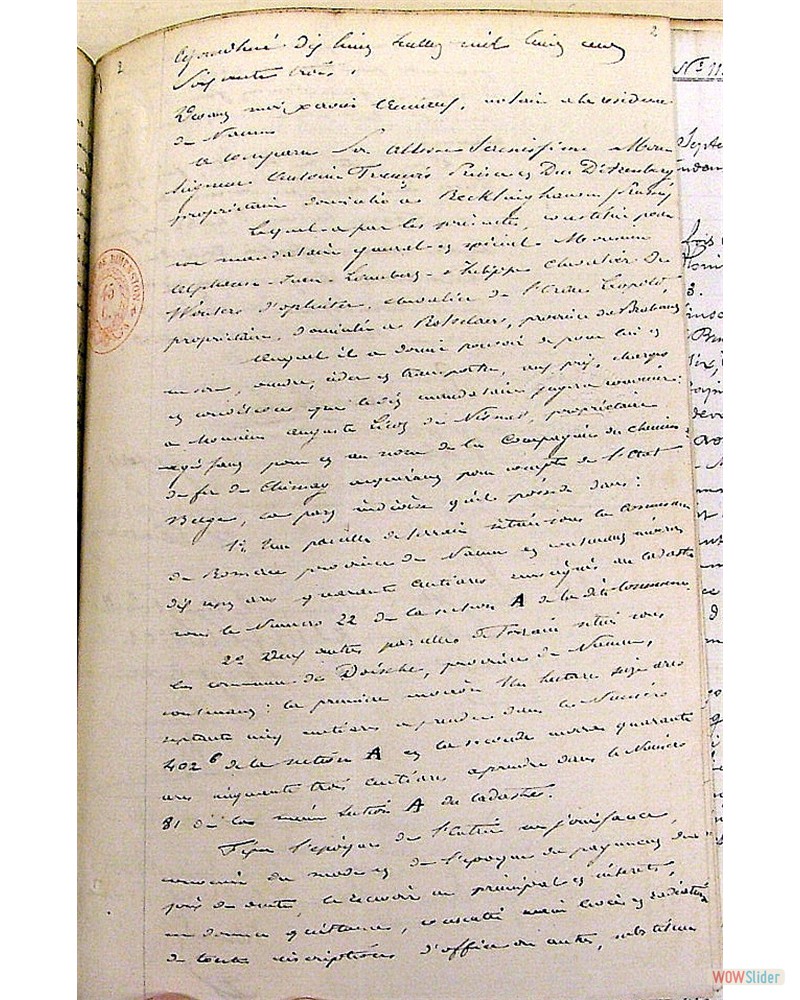 2
2
Aujourd'hui dix huit juillet mil huit cent
Soixante trois.
Devant moi Xavier notaire à la résidence
de Namur
a comparu Son Altesse Sérénissime Mon-
seigneur Antoine François Prince et Duc D'Arenberg
propriétaire domicilié à Recklinghausen (Prusse)
Lequel a par les présentes, constitué pour
son mandataire général et spécial Monsieur
Alphonse Jean Philippe chevalier de
Wouters d'oplinter, chevalier de l'Ordre Léopold,
propriétaire, domicilié à province de Brabant
Auquel il a donné pouvoir de pour lui et
en son nom, vendre, céder et transporter, aux prix, charges
et conditions que le dit mandataire jugera convenir:
à Monsieur Auguste de Nismes, propriétaire
agissant pour et au nom de la Compagnie du chemin
de fer de Chimay acquérant pour compte de l'Etat
Belge, la part indivise qu'il possède dans:
1° Une parcelle de terrain située sous la commune
de Romerée province de Namur et contenant
dix sept ares quarante centiares au cadastre
sous le Numéro 22 de la section A de la dite Commune
2° Deux autres parcelles de terrain situées sous
la commune de Doische, province de Namur,
contenant: la première Un hectare seize ares
septante cinq centiares à prendre dans le Numéro
402 6 de la section A et la seconde quarante
ares cinquante trois centiares à prendre dans le Numéro
81 de la même Section A du cadastre.
Fixer l'époque de l'entrée en jouissance,
convenir du mode et de l'époque du payement du
prix de vente, le recevoir en principal et intérêts,
en donner quittance, consentir main levée et radiation
de toutes inscriptions d'office ou autre, substituer
DIMENSION
45
N° 11
Septe
fois
3.
WOWSlider